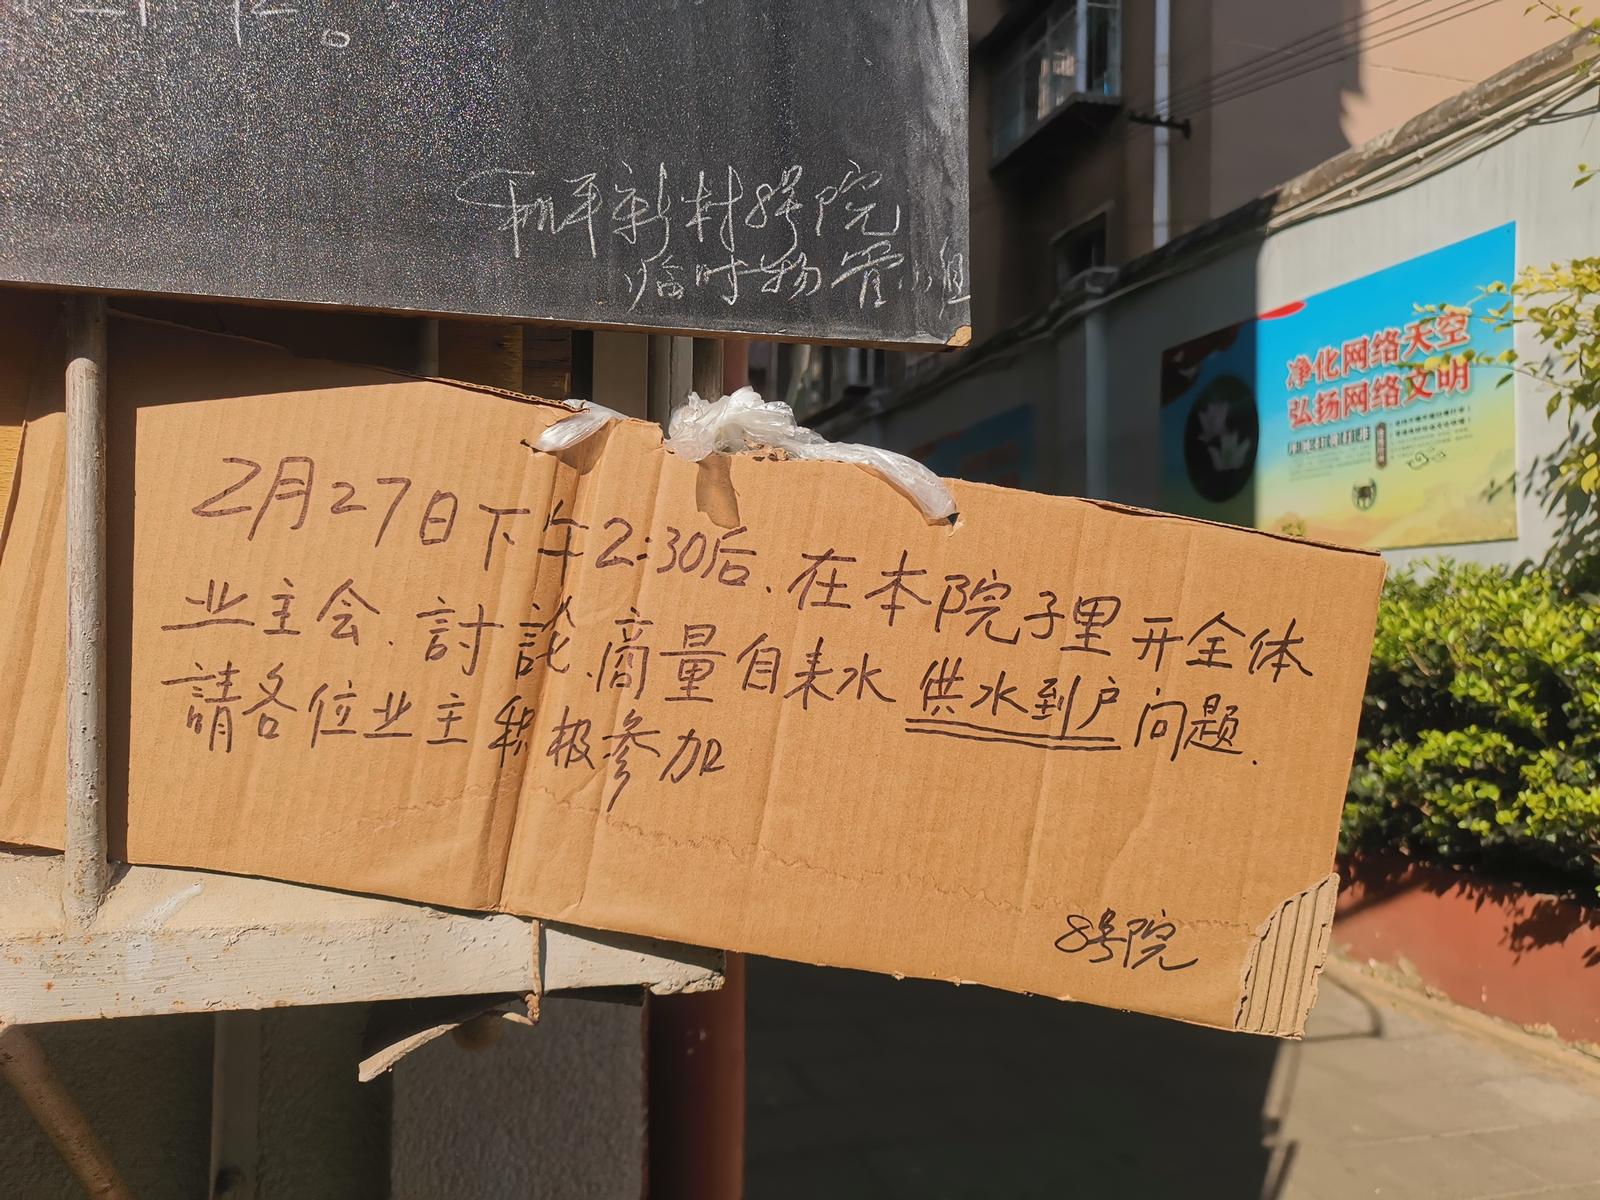 和平新村8号院
临时物管小组
2月27日下午2:30后.在本院子里开全体
业主会.討論.商量自来水供水到户问题.
請各位业主积极参加
8号院
净化网络天空
弘扬网络文明